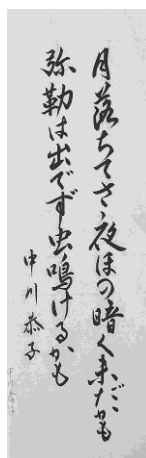 月落ちてさ夜ほの暗く未だかも
弥勒は出でず虫鳴けるかも
中川恭子